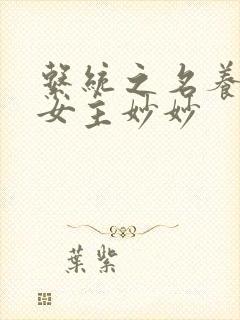 繫統之名養
女主妙妙
葉紫